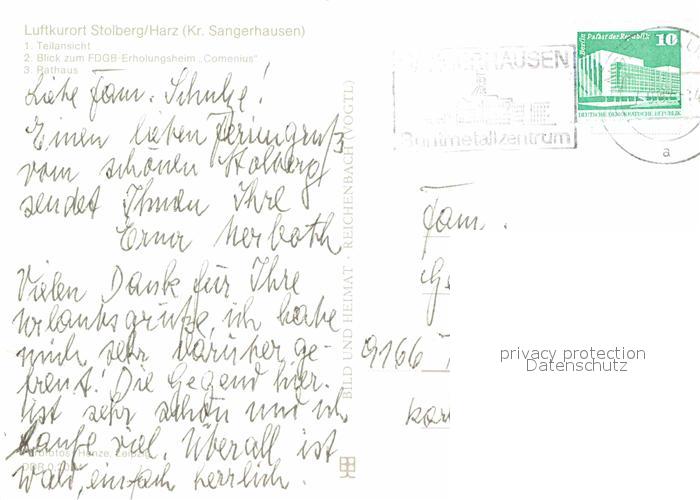 Luftkurort Stolberg/Harz (Kr. Sangerhausen)
1. Teilansicht
2. Blick zum FDGB-Erholungsheim „Comenius"
3. Rathaus
Liebe Fam. Schulze!
Einen lieben Feriengruß
vom schönen Stolberg
sendet Ihnen Ihre
Erna
Vielen Dank für Ihre
Urlaubsgrüße, ich habe
mich sehr darüber ge-
freut! Die Gegend hier
ist sehr schön und ich
laufe viel. Überall ist
Wald, einfach herrlich.
BILD UND HEIMAT · REICHENBACH (VOGTL)
SANGERHAUSEN
Buntmetallzentrum
Berlin Palast der Republik 10
DEUTSCHE DEMOKRATISCHE REPUBLIK
a
Fam.
9166
privacy protection
Datenschutz